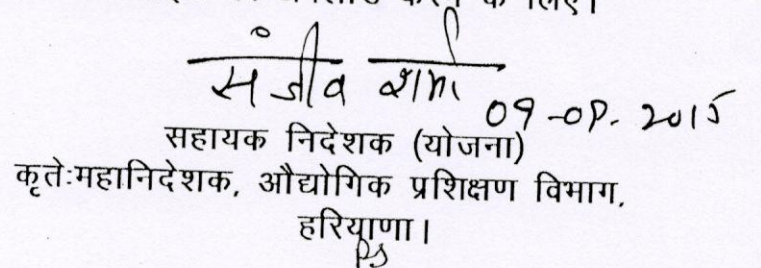 करने के लिए।
संजीव शर्मा 09-09-2015
सहायक निदेशक (योजना)
कृतेःमहानिदेशक, औद्योगिक प्रशिक्षण विभाग,
हरियाणा।